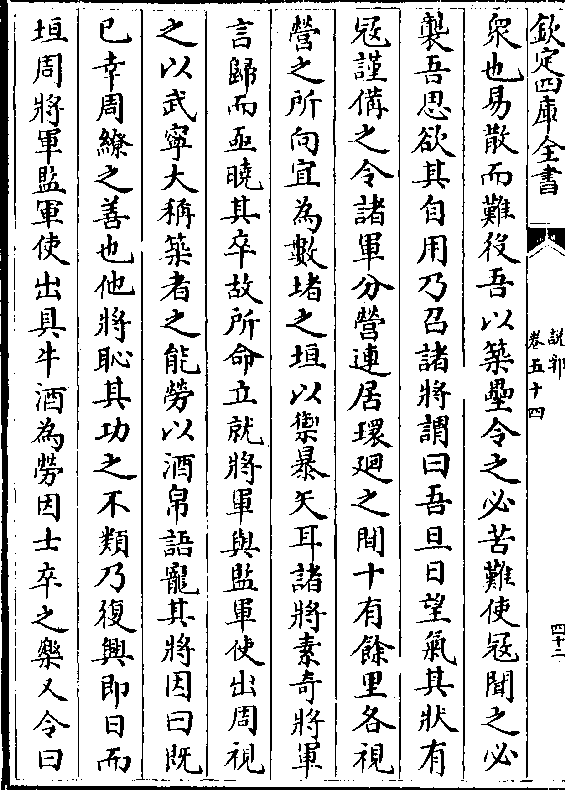 欽定四庫全書
說郛
卷五十四
四十二
衆也易散而難役吾以築壘令之必苦難使冦聞之必
製吾思欲其自用乃召諸將謂曰吾旦日望氣其狀有
冦謹備之令諸軍分營連居環廻之間十有餘里各視
營之所向宜為數堵之垣以禦暴矢耳諸將素奇將軍
言歸而亟曉其卒故所命立就將軍與監軍使出周視
之以武寧大稱築者之能勞以酒帛語寵其將因曰既
已幸周繚之善也他將恥其功之不類乃復興即日而
垣周將軍監軍使出具牛酒為勞因士卒之樂又令曰